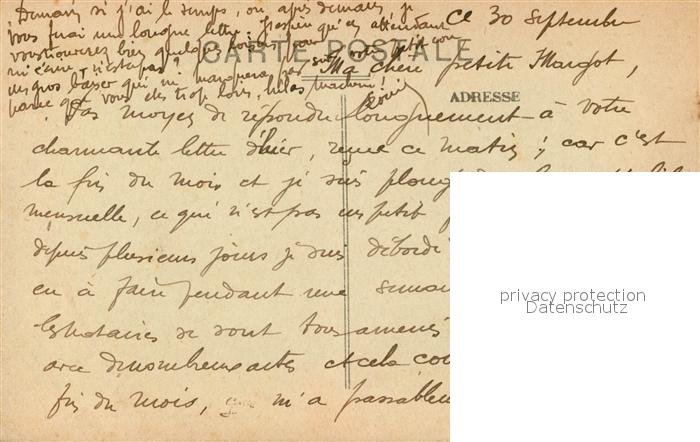 Demain si j'ai le temps, ou après demain, je
vous ferai une longue lettre. J'espère qu'en attendant
vous trouverez bien quelques
n'est-ce pas?
un gros baiser qui ne manquera pas
parce que vous êtes trop loin, hélas
Ce 30 Septembre
CARTE POSTALE
Ma chère petite Margot,
ADRESSE
Pas moyen de répondre longuement à votre
charmante lettre d'hier, reçue ce matin; car c'est
la fin du mois et je suis
mensuelle, ce qui n'est pas un petit
depuis plusieurs jours je suis débordé
eu à faire pendant une
les notaires se sont tous amenés
avec de nombreux actes et cela
fin du mois, m'a
privacy protection
Datenschutz